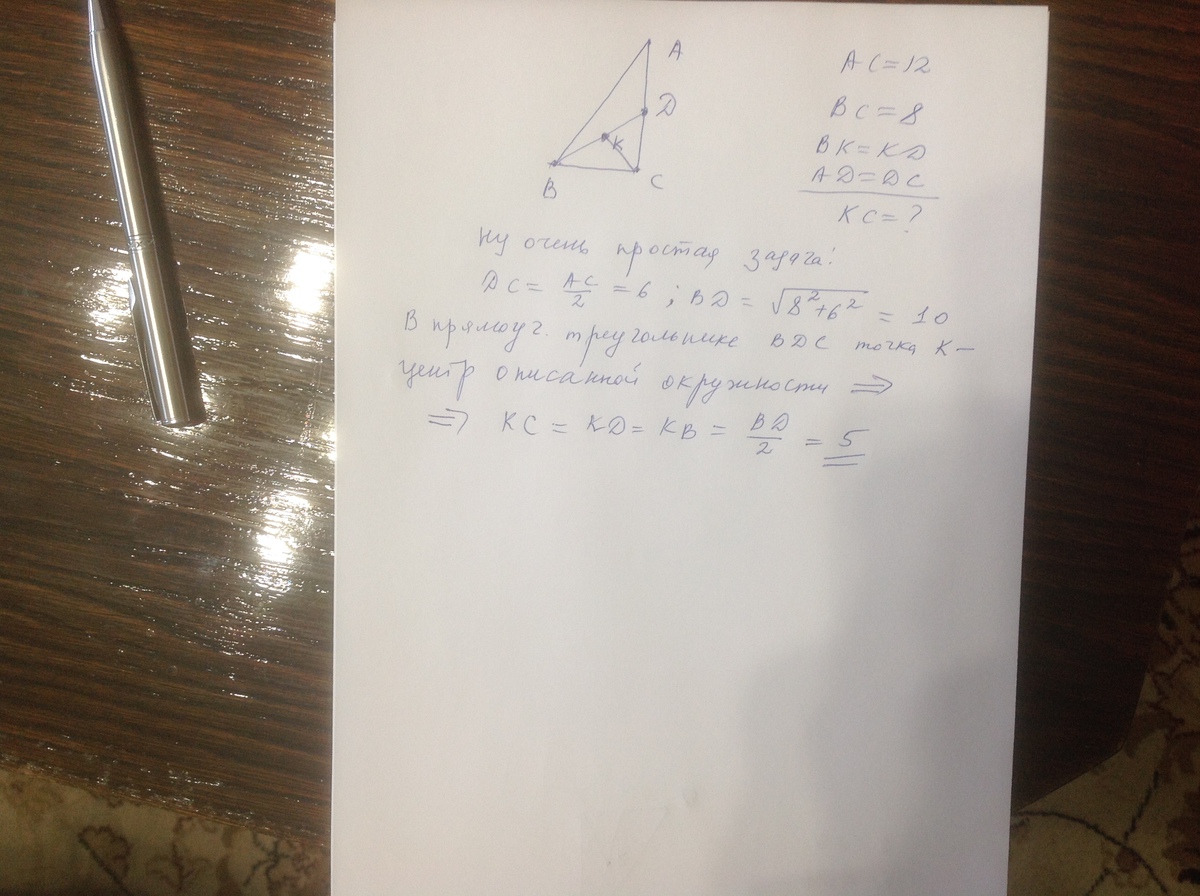 A
D
K
B
C
AC=12
BC=8
BK=KD
AD=DC
KC=?
Ну очень простая задача!
DC = AC/2 = 6 ; BD = √8²+6² = 10
В прямоуг. треугольнике BDC точка K-
центр описанной окружности ⇒
⇒ KC = KD = KB = BD/2 = 5